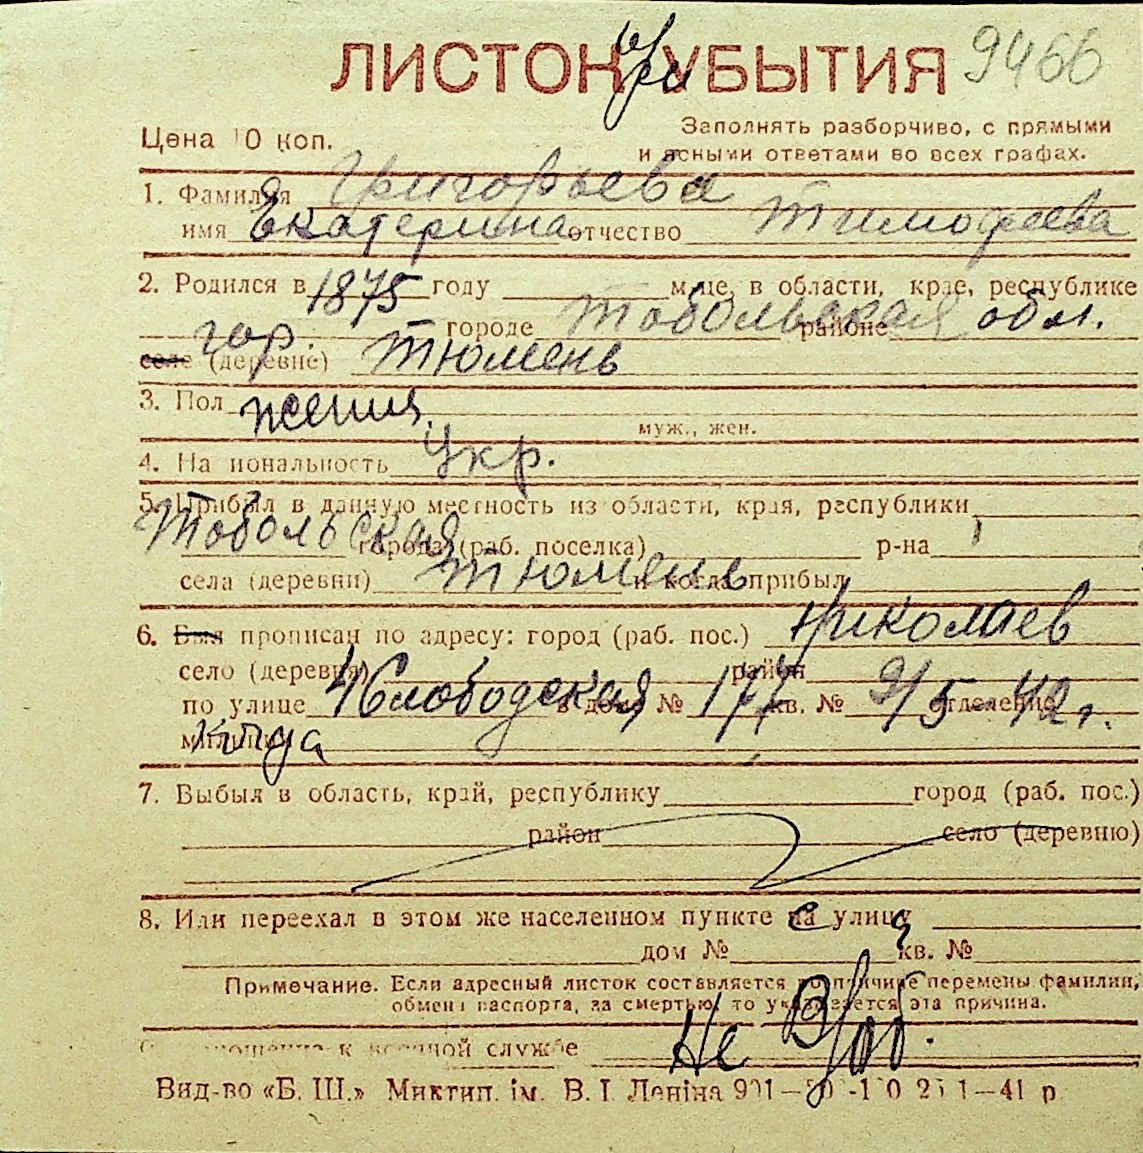 ЛИСТОК УБЫТИЯ 9466
Цена 10 коп.
Заполнять разборчиво, с прямыми
и ясными ответами во всех графах.
1. Фамилия Григорьева
имя Екатерина отчество Тимофеева
2. Родился в 1875 году м-це, в области, крае, республике
гор. городе Тобольская районе обл.
селе (деревне) Тюмень
3. Пол женщ.
муж., жен.
4. Национальность Укр.
5. Прибыл в данную местность из области, края, республики
Тобольская города (раб. поселка) р-на
села (деревни) Тюмень и когда прибыл
6. Был прописан по адресу: город (раб. пос.) Николаев
село (деревня) район
по улице 4 Слободская в доме № 177 кв. № 9/5-42 г. отделение
милиции
7. Выбыл в область, край, республику город (раб. пос.)
район село (деревню)
8. Или переехал в этом же населенном пункте на улицу
дом № кв. №
Примечание. Если адресный листок составляется по причине перемены фамилии,
обмена паспорта, за смертью, то указывается эта причина.
Отношение к военной службе Не
Вид-во «Б. Ш.» Миктип. ім. В. І. Леніна